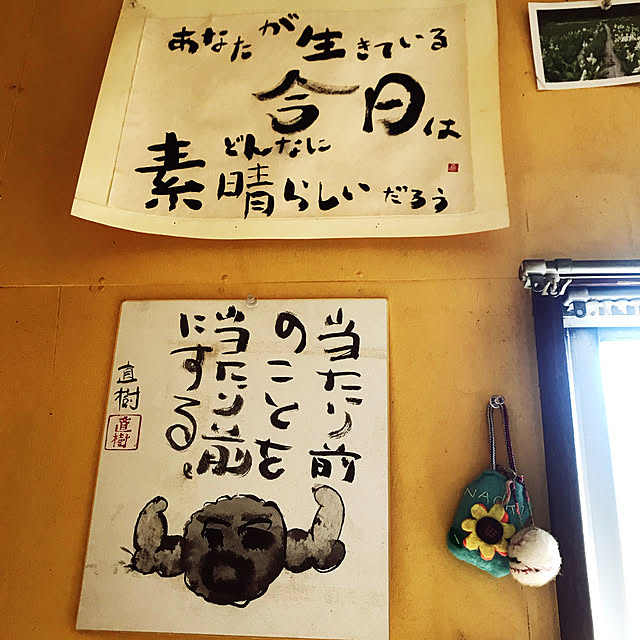 あなたが生きている
今日は
どんなに
素晴らしいだろう
当たり前
のことを
当たり前
にする。
直樹
直樹